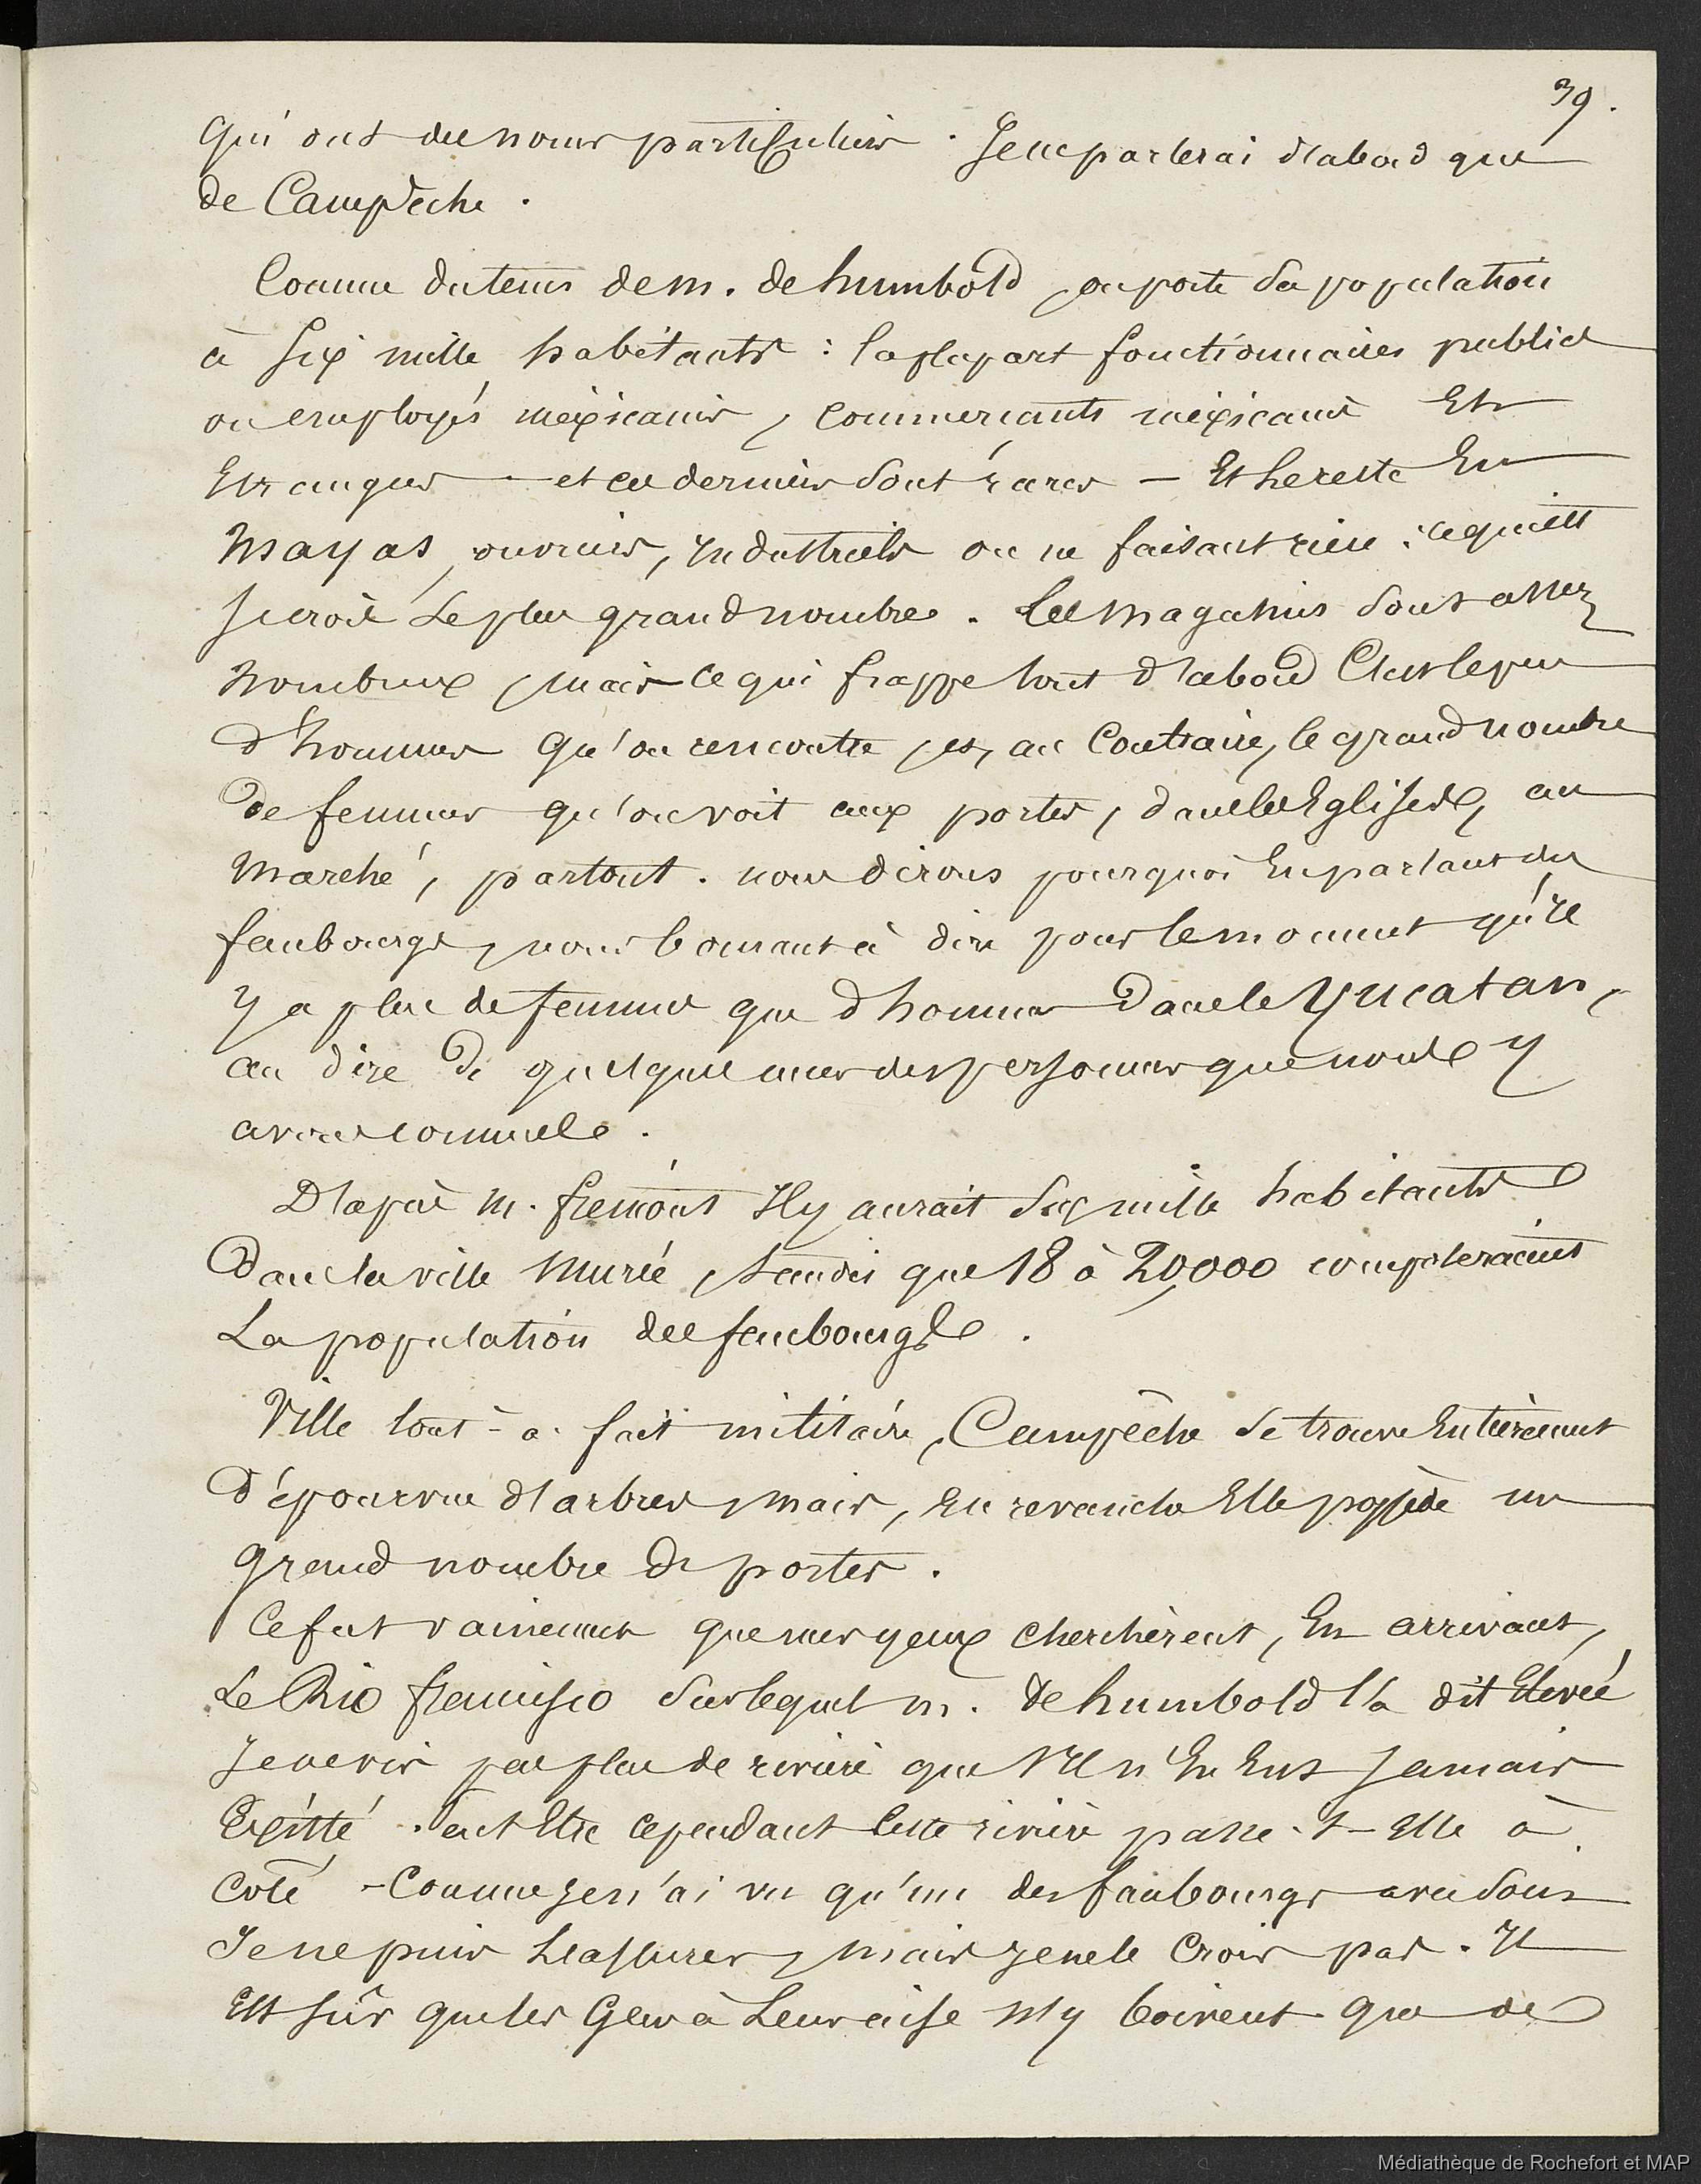 39.
qui ont des noms particuliers. Je ne parlerai d'abord que
de Campêche.
Comme du tems de m. de humbold, on porte sa population
à six mille habitants : la plupart fonctionnaires publics
ou employés mexicains, commerçants mexicains Et
Etrangers — et ces derniers sont rares — Et le reste En
mayas, ouvriers, industriels ou ne faisant rien : ce qui est
je crois le plus grand nombre. Les magasins sont assez
nombreux, mais ce qui frappe tout d'abord C'est le peu
d'hommes qu'on rencontre, et, au Contraire, le grand nombre
de femmes qu'on voit aux portes, dans les Eglises, au
marché, partout. nous dirons pourquoi En parlant des
faubourgs, nous bornant à dire pour le moment qu'il
y a plus de femmes que d'hommes dans le Yucatan,
au dire de quelques unes des personnes que nous y
avons connues.
D'après m. fremont Il y aurait six mille habitants
dans la ville murée, tandis que 18 à 20,000 completeraient
La population des faubourgs.
Ville tout-à-fait militaire, Campêche se trouve Entièrement
dépourvue d'arbres, mais, En revanche Elle possède un
grand nombre de portes.
Ce fut vainement que mes yeux cherchèrent, En arrivant,
Le Rio francisco sur lequel m. de humbold l'a dit Elevée
Je ne vis pas plus de rivière que s'Il n'En Eut Jamais
Existé. Peut Etre cependant Cette rivière passe-t-Elle à
coté - Comme je n'ai vu qu'un des faubourgs avec soin
Je ne puis L'assurer, mais je ne le Crois pas. Il
Est sûr que les Gens à Leur aise n'y boivent que de
Médiathèque de Rochefort et MAP